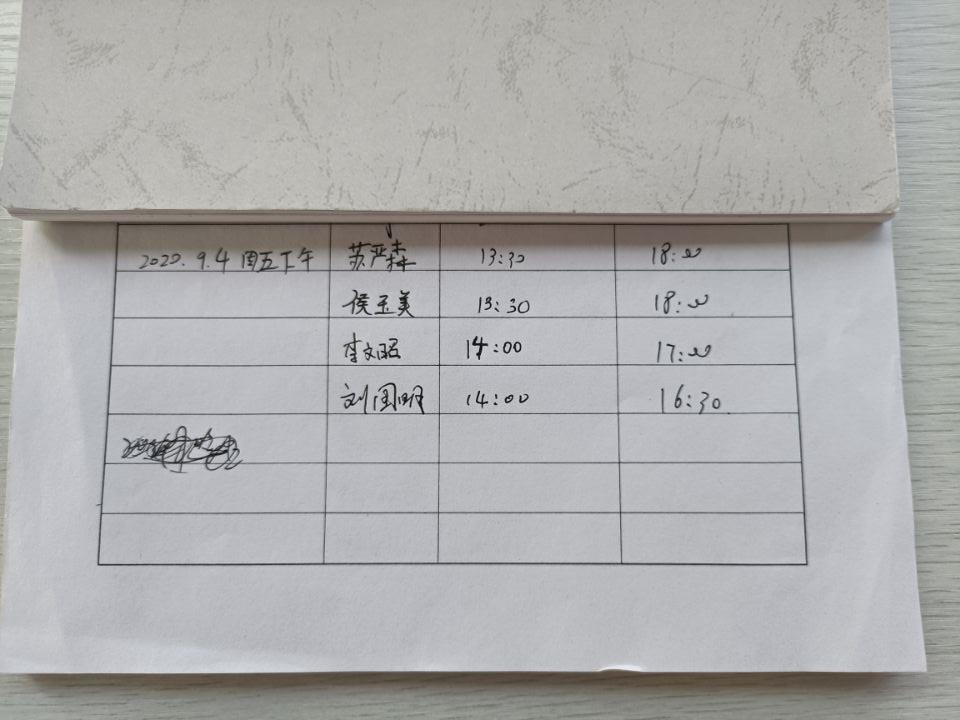 2020.9.4 周五下午 苏严森 13:30 18:00
侯玉美 13:30 18:00
李文昭 14:00 17:00
刘国明 14:00 16:30